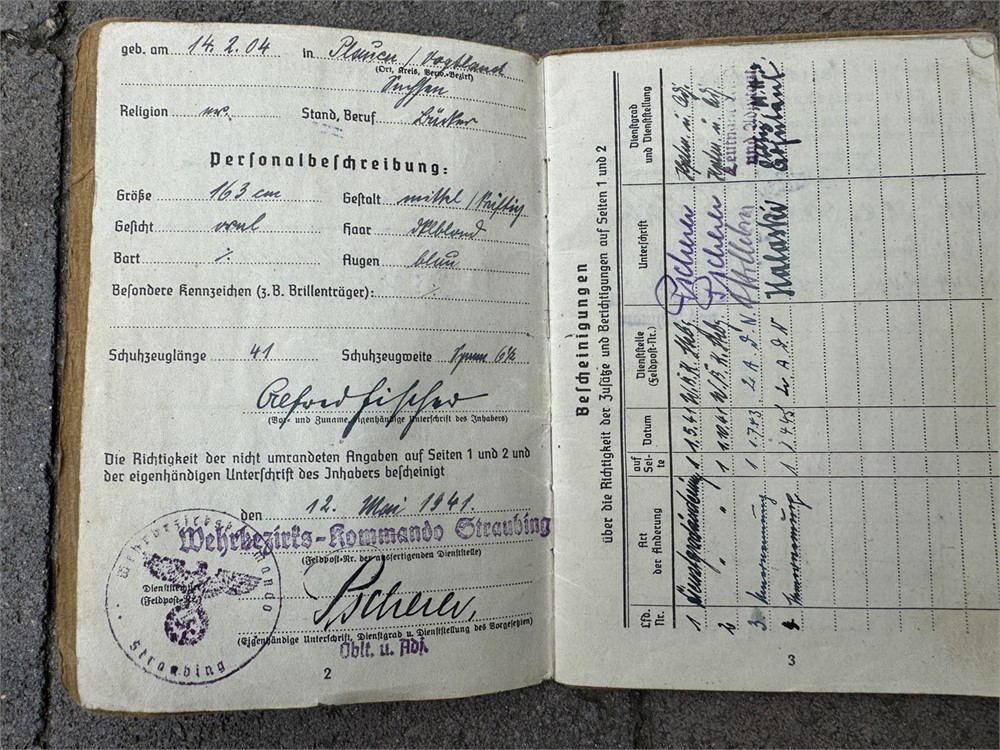 geb. am 14. 2. 04 in Plauen / Vogtland
(Ort, Kreis, Verw.-Bezirk)
Sachsen
Religion Stand, Beruf Bäcker
Personalbeschreibung:
Größe 163 cm Gestalt mittel / kräftig
Gesicht oval Haar dklblond
Bart ⁒ Augen blau
Besondere Kennzeichen (z. B. Brillenträger): ⁒
Schuhzeuglänge 41 Schuhzeugweite
Alfred Fischer
(Vor- und Zuname, eigenhändige Unterschrift des Inhabers)
Die Richtigkeit der nicht umrandeten Angaben auf Seiten 1 und 2 und
der eigenhändigen Unterschrift des Inhabers bescheinigt
den 12. Mai 1941.
Wehrbezirks-Kommando Straubing
(Feldpost-Nr. der ausfertigenden Dienststelle)
Dienststempel
(Feldpost-Nr.)
Wehrbezirkskommando
Straubing
Pscherer,
(Eigenhändige Unterschrift, Dienstgrad u. Dienststellung des Vorgesetzten)
Oblt. u. Adj.
2
Bescheinigungen
über die Richtigkeit der Zusätze und Berichtigungen auf Seiten 1 und 2
Lfd. Nr. Art der Änderung auf Sei- te Datum Dienststelle (Feldpost-Nr.) Unterschrift Dienstgrad und Dienststellung
1 1 Pscherer Hptm. u. Adj.
2 " " 1 Pscherer Hptm. u. Adj.
3 1 Leutnant
4 1 Adjutant
3